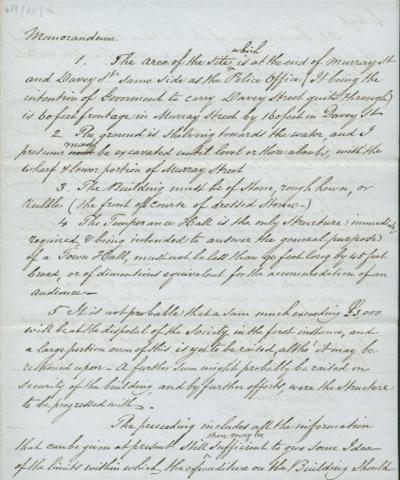 Memorandum.
1. The Area of the Site, which is at the end of Murray St
and Davey St. same side as the Police Office (It being the
intention of Goverment to carry Davey Street quite through)
is 60 feet frontage in Murray Street by 160 feet in Davey St
2 The ground is shelving towards the water and I
presume must be excavated until level or there abouts, with the
Wharf & lower portion of Murray Street
3. The Building must be of Stone, rough hewn, or
Rubble (the front of course of dressed Stone—)
4 The Temperance Hall is the only Structure immediately
required, & being intended to answer the general purposes
of a Town Hall, must not be less than 90 feet long by 45 feet
broad, or of dimensions equivalent for the accommodation of an
audience—
5 It is not probable that a sum much exceeding £3,000.
will be at the disposal of the Society, in the first instance, and
a large portion even of this is yet to be raised, altho' it may be
reckoned upon— A further Sum might probably be raised on
security of the building, and by further efforts, were the Structure
to be progressed with.
The preceding includes all the information
that can be given at present. Still there may be sufficient to give some Idea
of the limits within which, the expenditure on the Building should